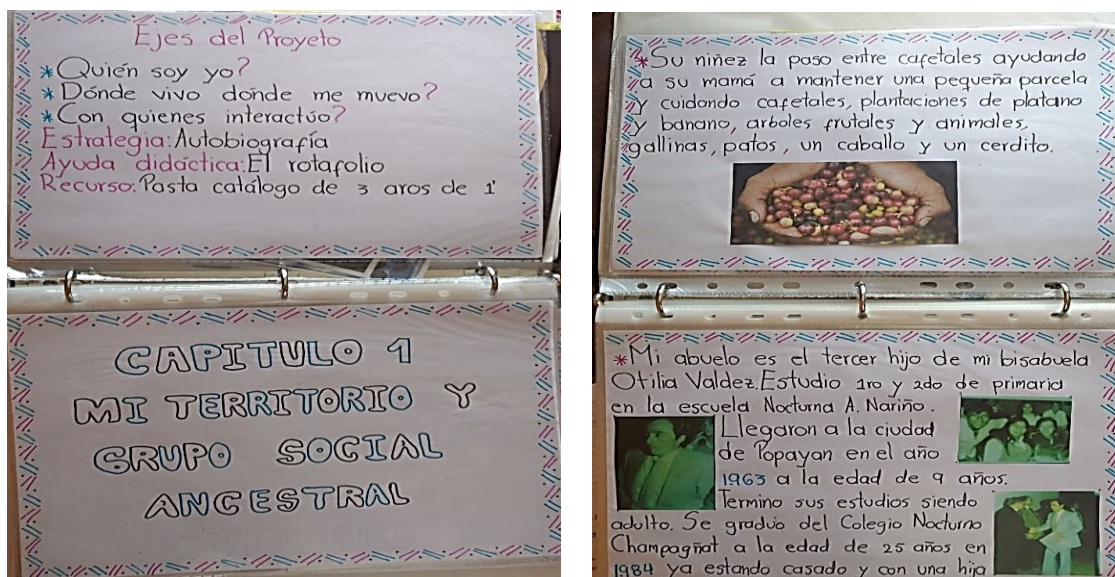 Ejes del Proyeto
*Quién soy yo?
*Dónde vivo dónde me muevo?
*Con quienes interactúo?
Estrategia: Autobiografía
Ayuda didáctica: El rotafolio
Recurso: Pasta catálogo de 3 aros de 1"
CAPITULO 1
MI TERRITORIO Y
GRUPO SOCIAL
ANCESTRAL
*Su niñez la paso entre cafetales ayudando
a su mamá a mantener una pequeña parcela
y cuidando cafetales, plantaciones de platano
y banano, arboles frutales y animales,
gallinas, patos, un caballo y un cerdito.
*Mi abuelo es el tercer hijo de mi bisabuela
Otilia Valdez. Estudio 1ro y 2do de primaria
en la escuela Nocturna A. Nariño.
Llegaron a la ciudad
de Popayan en el año
1963 a la edad de 9 años.
Termino sus estudios siendo
adulto. Se graduo del Colegio Nocturno
Champagñat a la edad de 25 años en
1984 ya estando casado y con una hija